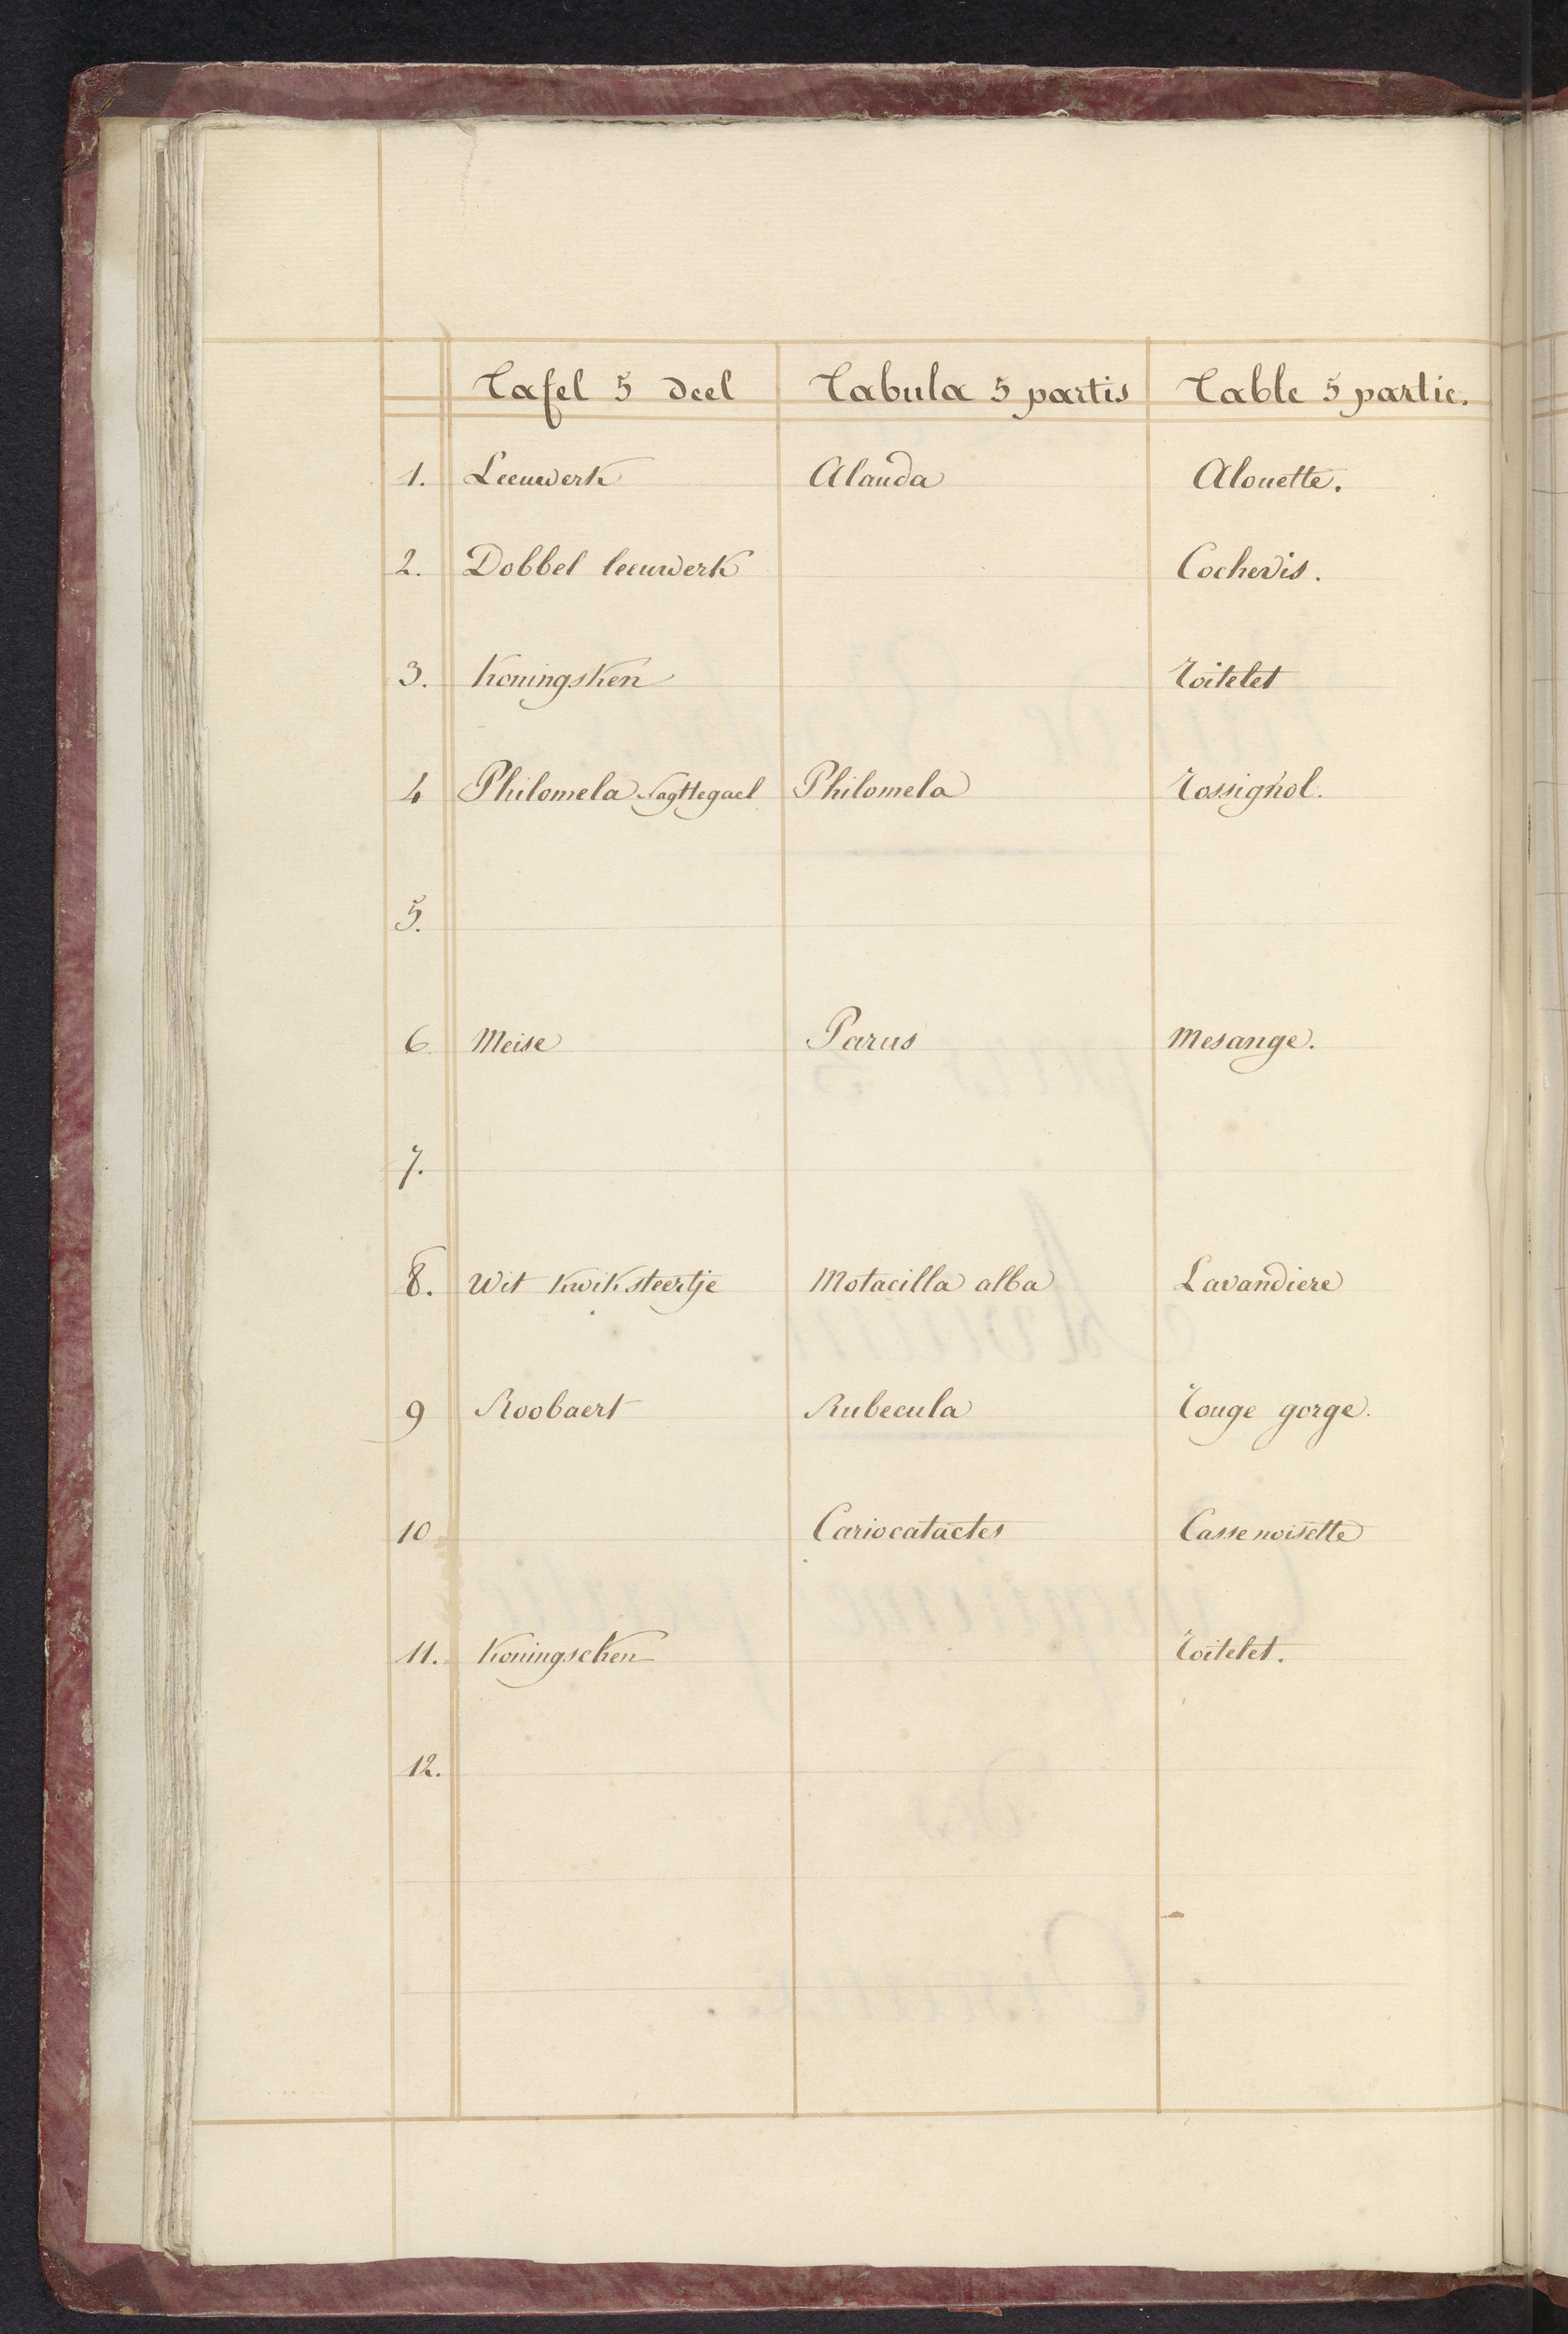 Tafel 5 deel Tabula 5 partis Table 5 partie.
1. Leeuwerk Alauda Alouette.
2. Dobbel leeuwerk Cochevis.
3. Koningsken Roitelet
4 Philomela Nagttegael Philomela Rossignol.
5.
6 Meise Parus Mesange.
7.
8. Wit Kwiksteertje Motacilla alba Lavandiere
9 Roobaert Rubecula Rouge gorge.
10 Cariocatactes Casse noisette
11. Koningschen Roitelet.
12.